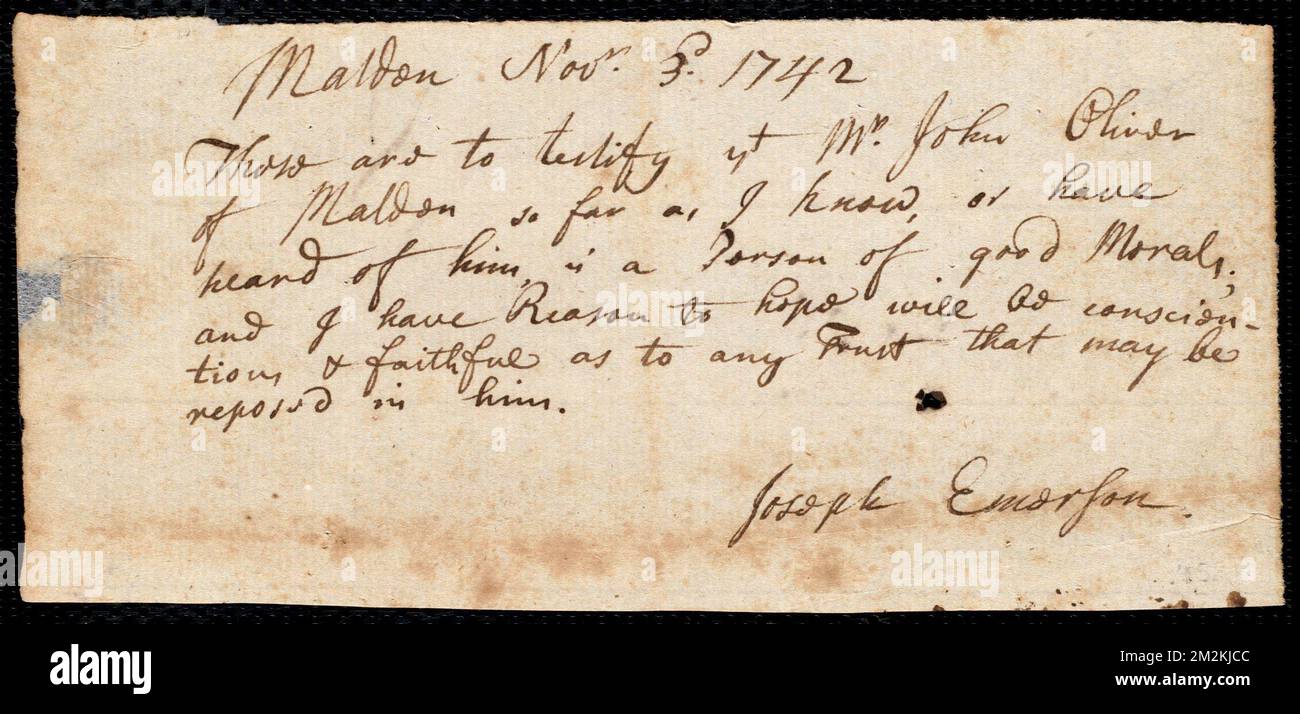 Malden Novr. 3d. 1742
These are to testify yt Mr. John Oliver
of Malden so far as I know, or have
heard of him, is a Person of good Morals;
and I have Reason to hope will be conscien-
tious & faithful as to any Trust that may be
reposed in him.
Joseph Emerson.
alamy
Image ID: 2M2KJCC
www.alamy.com